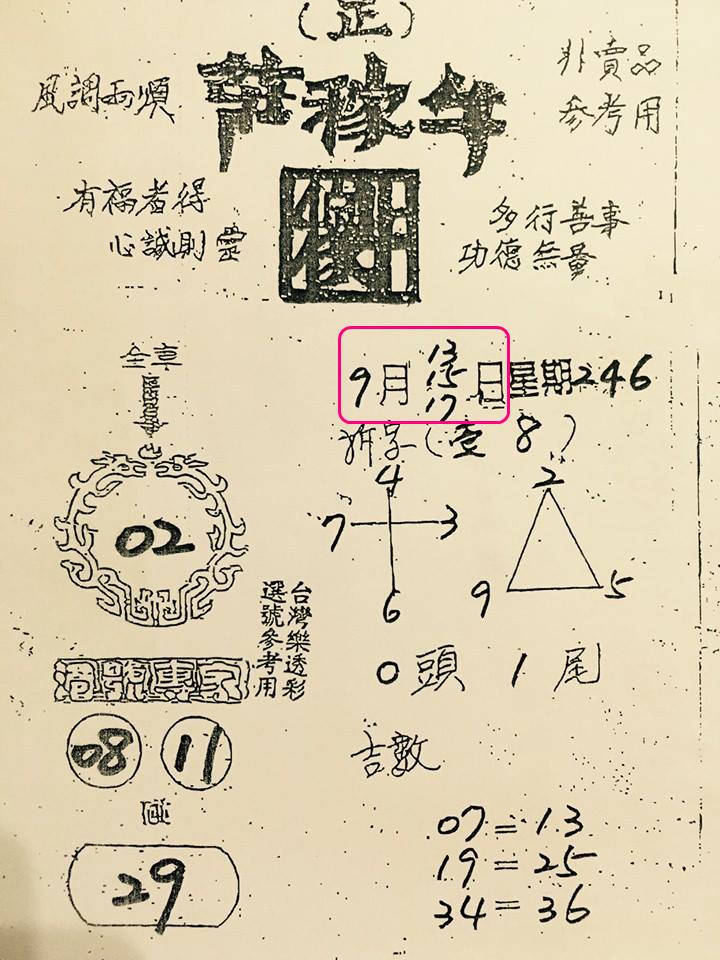 (正)
風調雨順
非賣品
參考用
有福者得
心誠則靈
多行善事
功德無量
9月13 15 17日星期246
拆字(壹 8)
02
4
7 3
6
2
9 5
台灣樂透彩
選號參考用
0頭 1尾
專家
08 11
吉數
29
07=13
19=25
34=36